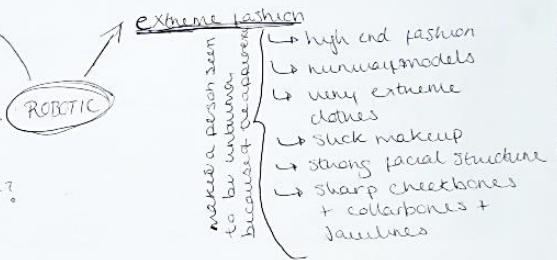 extreme fashion
ROBOTIC
makes a person seen
to be unhuman
because of the appearence
↳ high end fashion
↳ runway models
↳ very extreme
clothes
↳ slick makeup
↳ strong facial structure
↳ sharp cheekbones
+ collarbones +
Jawlines
?